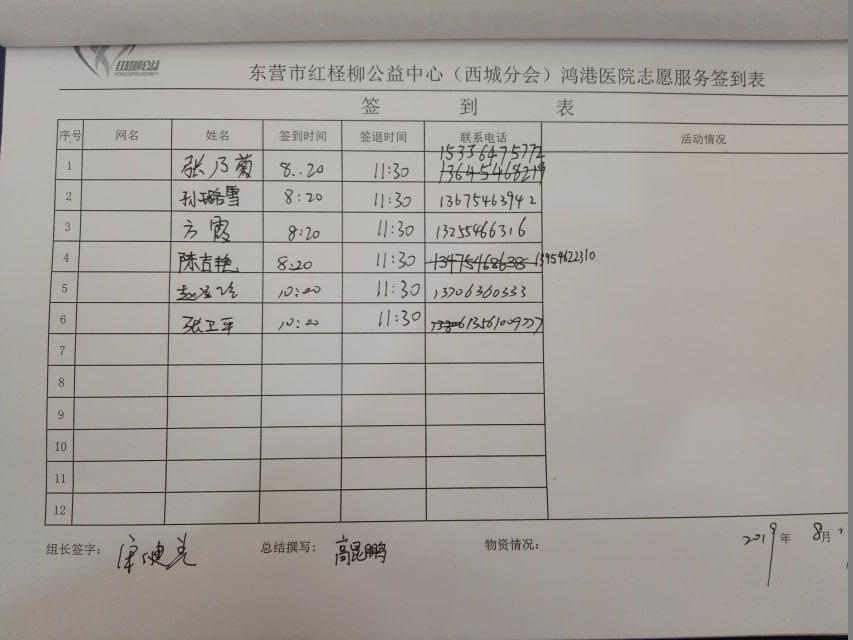 红柽柳公益
东营市红柽柳公益中心（西城分会）鸿港医院志愿服务签到表
签 到 表
序号 网名 姓名 签到时间 签退时间 联系电话 活动情况
15336475772
1 张乃菊 8:20 11:30 13645468219
2 孙璐雪 8:20 11:30 13675463942
3 方霞 8:20 11:30 13255466316
4 陈吉艳 8:20 11:30 13475468638 13954622310
5 10:20 11:30 13706360333
6 张卫平 10:20 11:30 13561009777
7
8
9
10
11
12
组长签字： 总结撰写：高昆鹏 物资情况： 2019年 8月